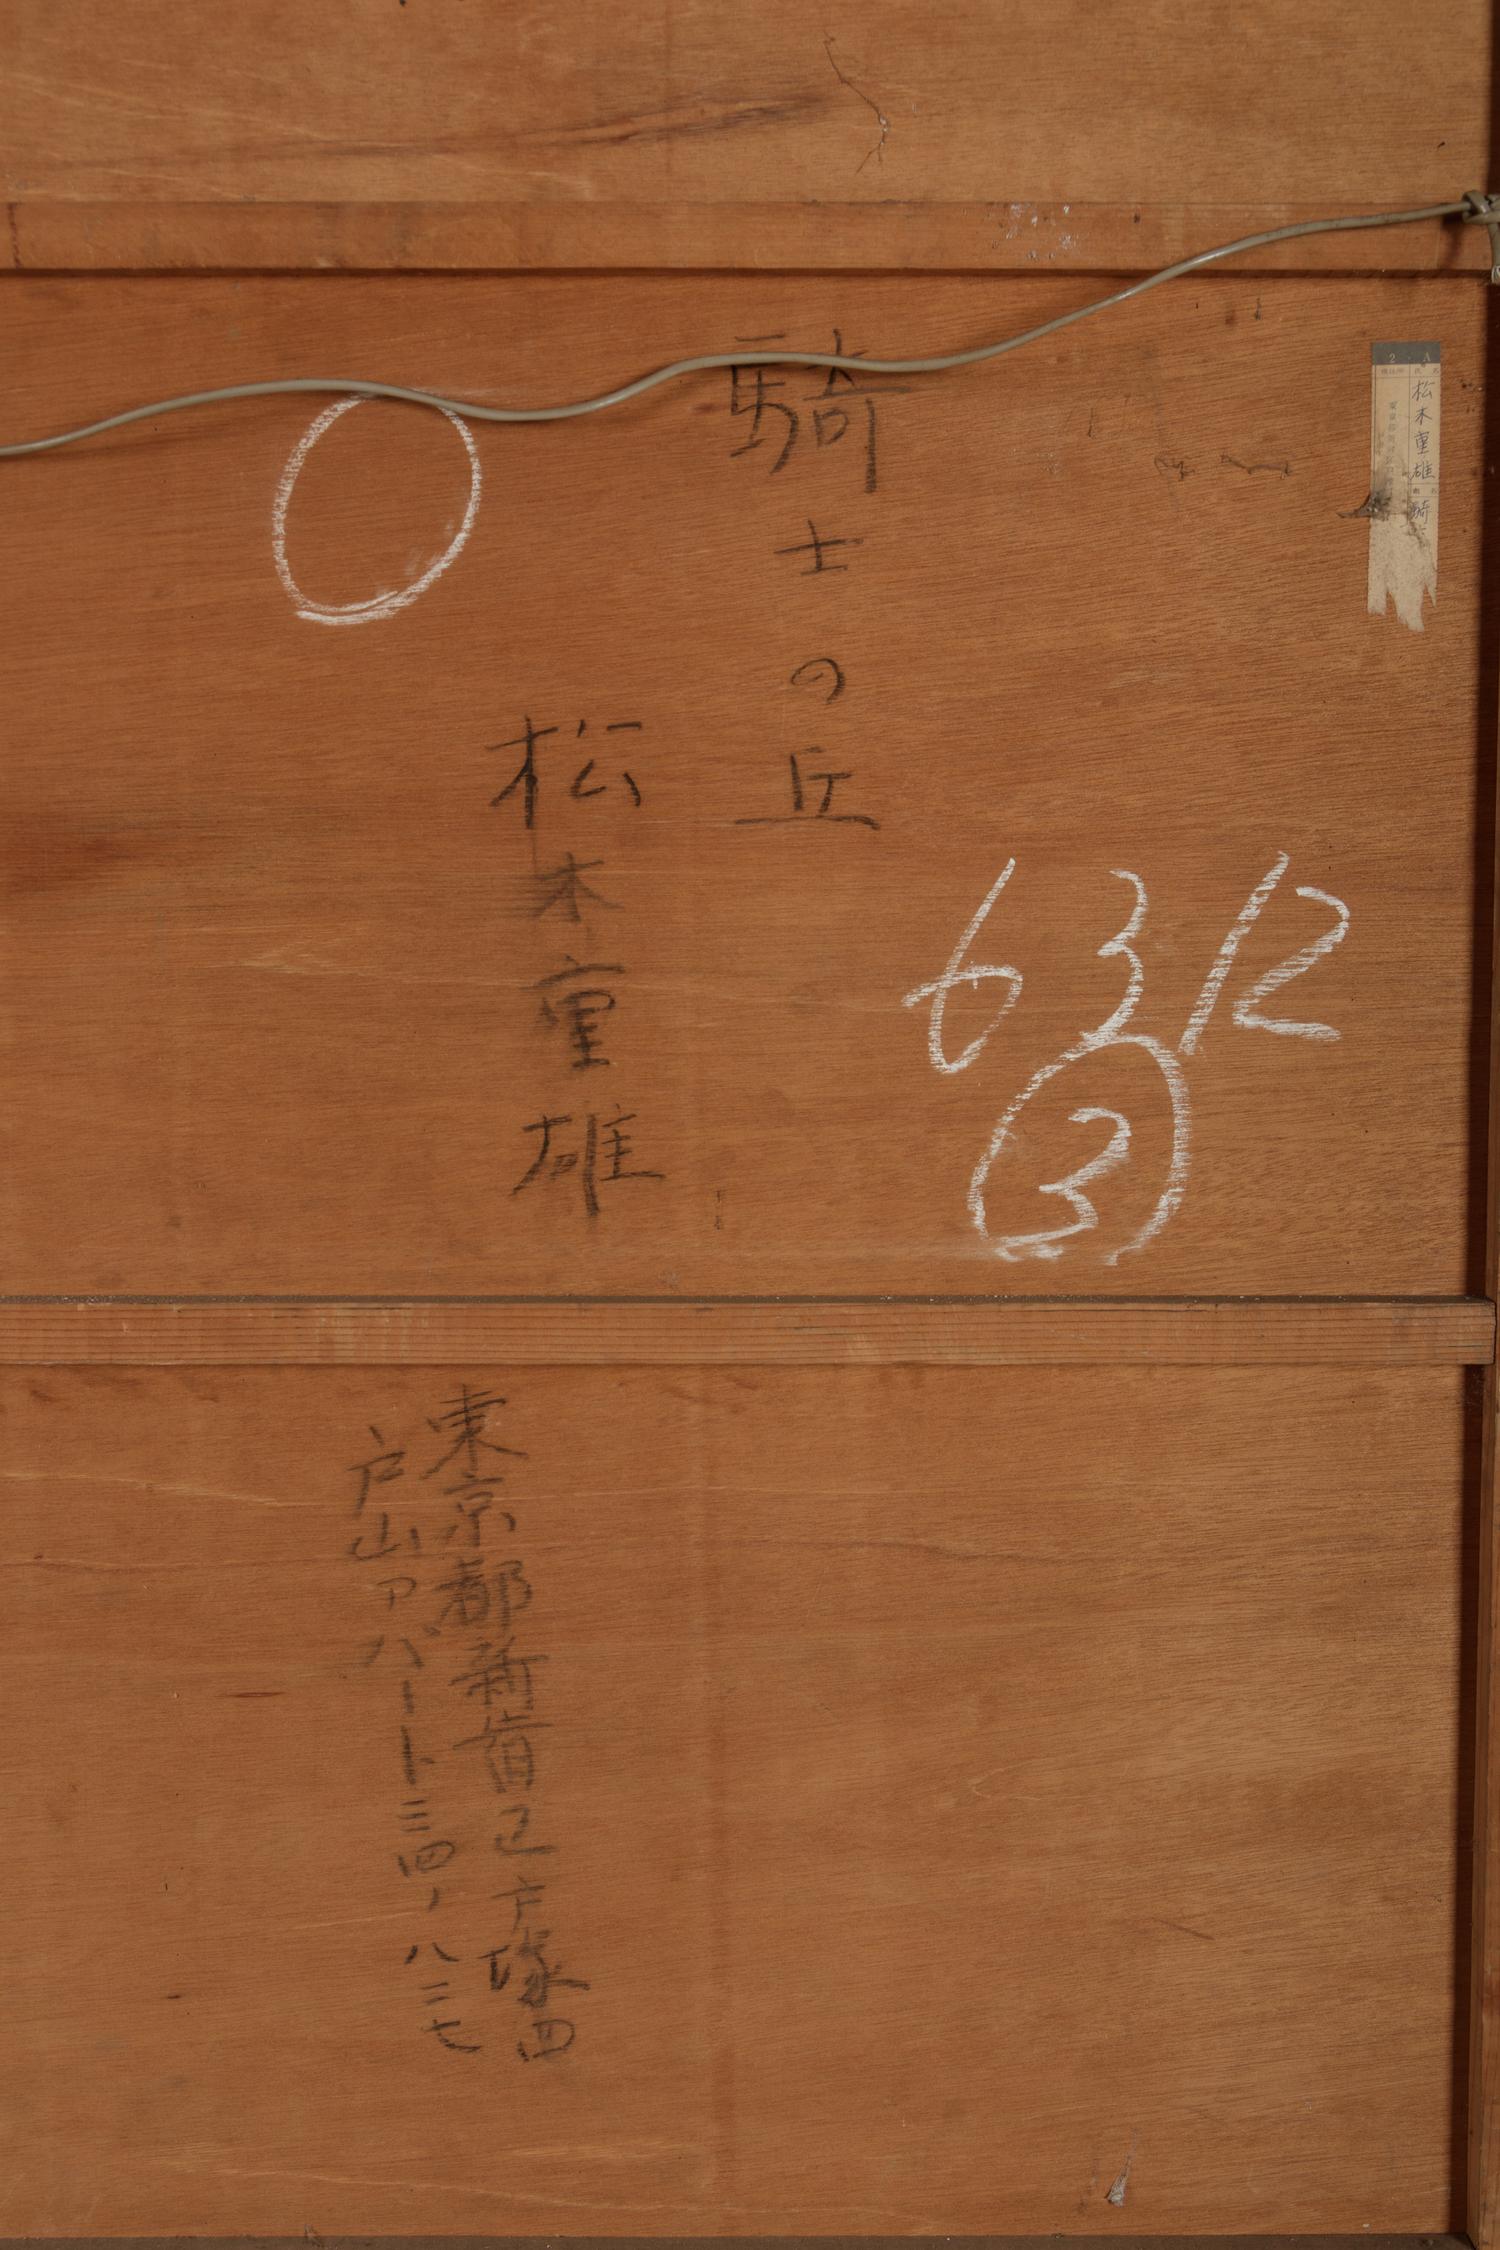 騎士の丘
松木重雄
東京都新宿区戸塚四
戸山アパート三四ノ八二七
6312
③
2 A
氏名
松木重雄
騎